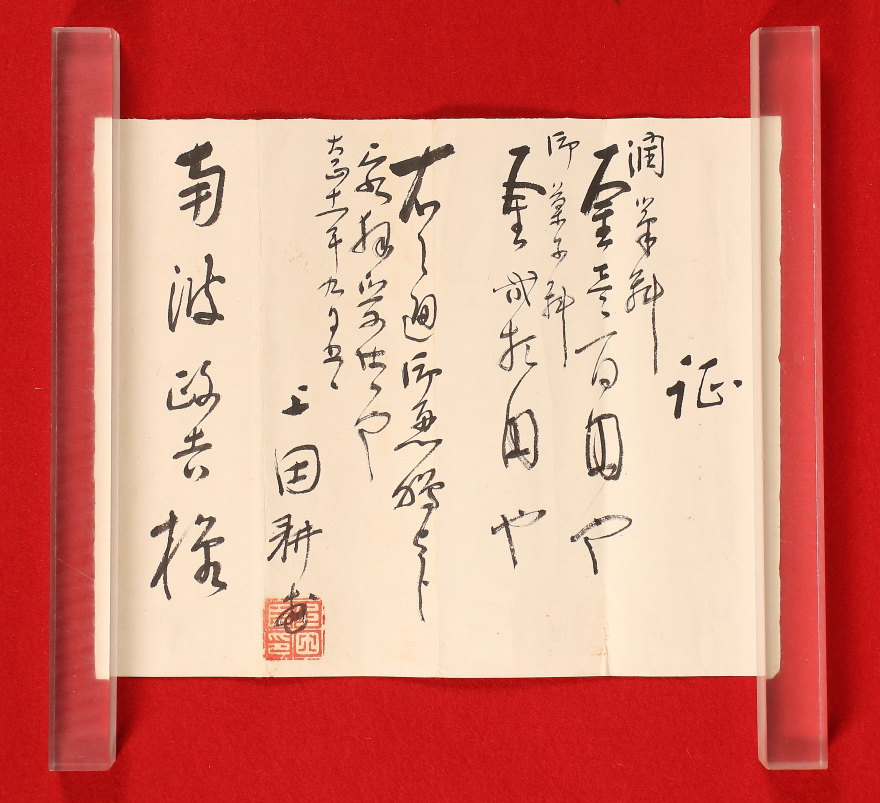 证
潤筆料
金壱百円也
御菓子料
金弐拾円也
右之通御恵贈
拝受仕候也
大正十一年九月五日
上田耕甫
南波政吉様